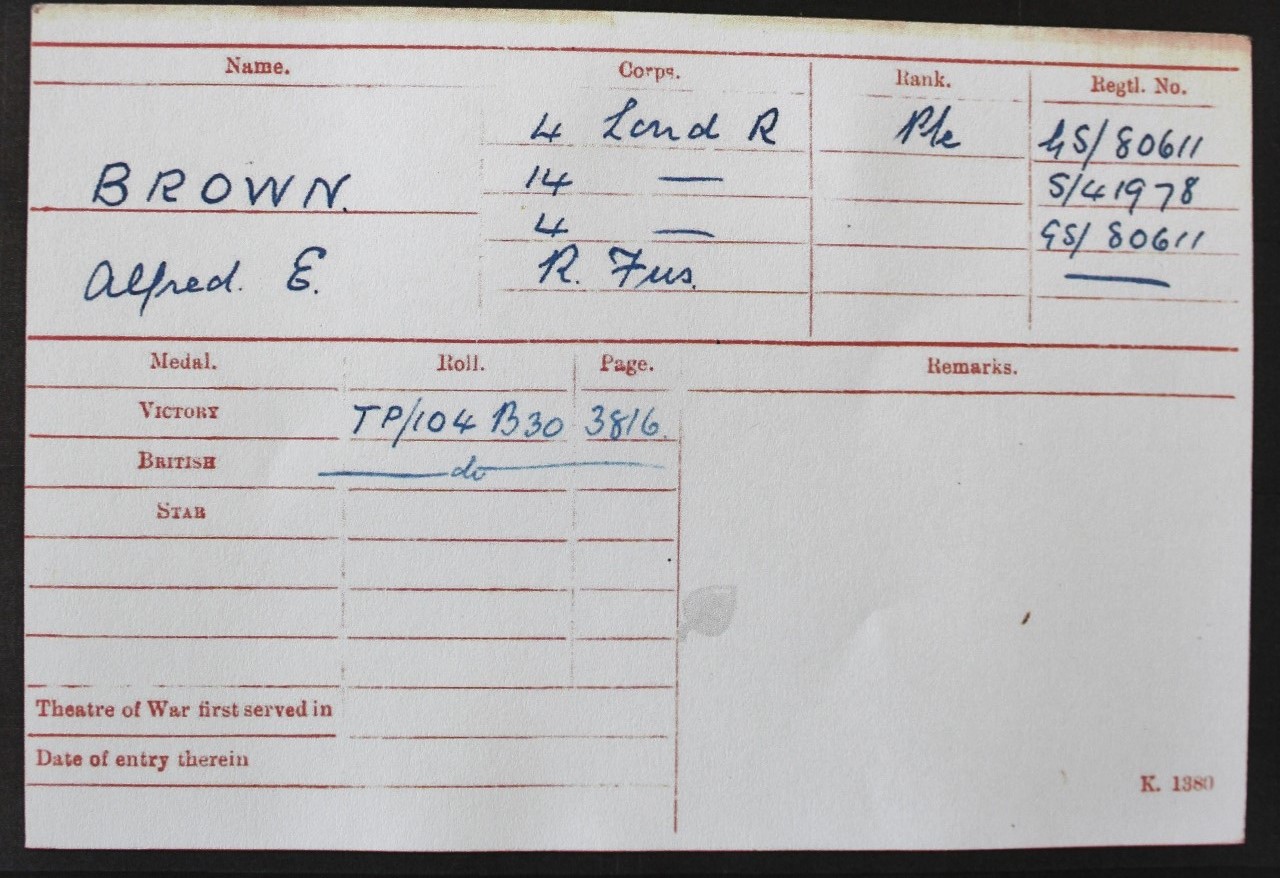 Name. Corps. Rank. Regtl. No.
4 Lond R Pte GS/80611
BROWN. 14 — S/41978
4 — GS/80611
Alfred. E. R. Fus. —
Medal. Roll. Page. Remarks.
VICTORY TP/104 B30 3816.
BRITISH — do —
STAR
Theatre of War first served in
Date of entry therein
K. 1380